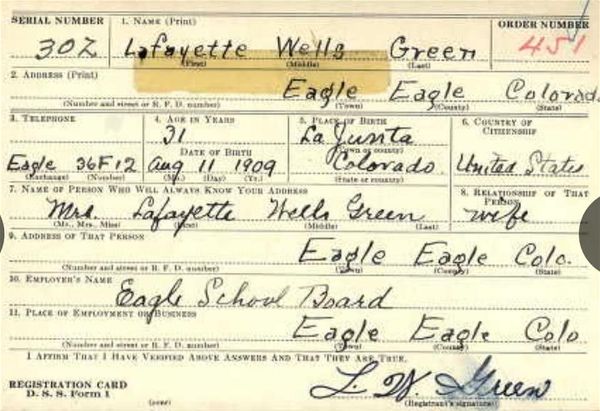 SERIAL NUMBER 1. NAME (Print) ORDER NUMBER
302 Lafayette Wells Green 451
(First) (Middle) (Last)
2. ADDRESS (Print)
Eagle Eagle Colorad
(Number and street or R. F. D. number) (Town) (County) (State)
3. TELEPHONE 4. AGE IN YEARS 5. PLACE OF BIRTH 6. COUNTRY OF CITIZENSHIP
31 La Junta
DATE OF BIRTH (Town or county)
Eagle 36F12 Aug 11 1909 Colorado United States
(Exchange) (Number) (Mo.) (Day) (Yr.) (State or country)
7. NAME OF PERSON WHO WILL ALWAYS KNOW YOUR ADDRESS 8. RELATIONSHIP OF THAT PERSON
Mrs. Lafayette Wells Green wife
(Mr., Mrs., Miss) (First) (Middle) (Last)
9. ADDRESS OF THAT PERSON
Eagle Eagle Colo.
(Number and street or R. F. D. number) (Town) (County) (State)
10. EMPLOYER'S NAME
Eagle School Board
11. PLACE OF EMPLOYMENT OR BUSINESS
Eagle Eagle Colo
(Number and street or R. F. D. number) (Town) (County) (State)
I AFFIRM THAT I HAVE VERIFIED ABOVE ANSWERS AND THAT THEY ARE TRUE.
REGISTRATION CARD
D. S. S. Form 1 L. W. Green
(over) (Registrant's signature)